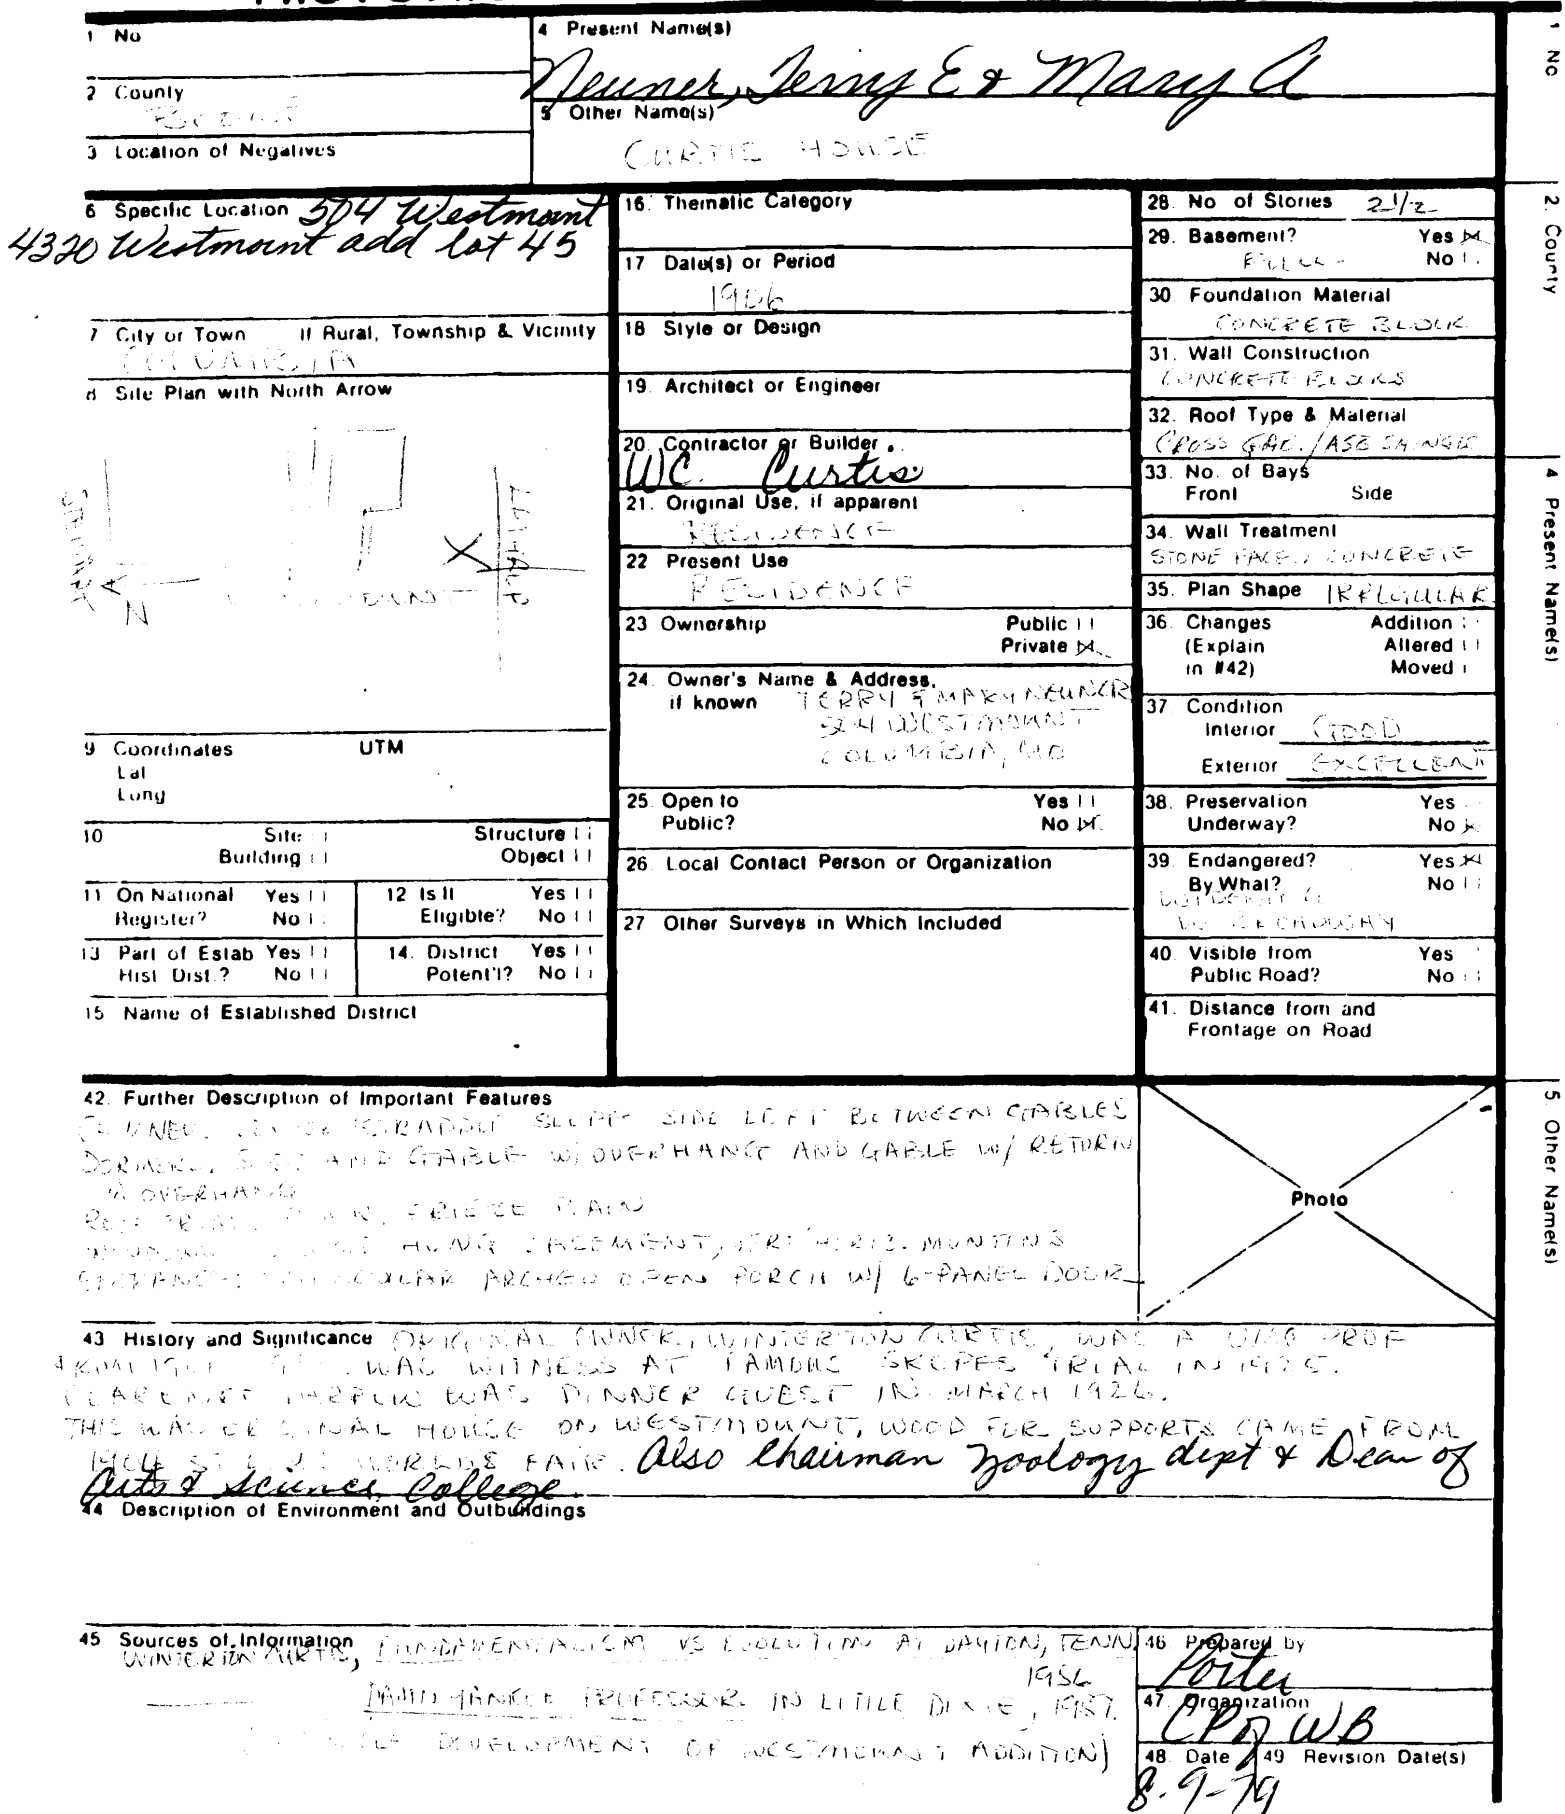 1 No
4 Present Name(s)
Neuner, Terry E & Mary A
2 County
5 Other Name(s)
3 Location of Negatives
CURTIS HOUSE
6 Specific Location 504 Westmount
4320 Westmount add lot 45
7 City or Town If Rural, Township & Vicinity
COLUMBIA
8 Site Plan with North Arrow
N
9 Coordinates UTM
Lat
Long
10 Site
Structure
Building
Object
11 On National Register? Yes No
12 Is It Eligible? Yes No
13 Part of Estab Hist Dist.? Yes No
14. District Potent'l? Yes No
15 Name of Established District
16. Thematic Category
17 Date(s) or Period
1906
18 Style or Design
19. Architect or Engineer
20. Contractor or Builder
WC. Curtis
21. Original Use, if apparent
RESIDENCE
22 Present Use
RESIDENCE
23 Ownership Public
Private
24. Owner's Name & Address,
if known TERRY & MARY NEUNER
504 WESTMOUNT
COLUMBIA, MO
25. Open to Yes
Public? No
26. Local Contact Person or Organization
27 Other Surveys in Which Included
28. No of Stories 2 1/2
29. Basement? Yes
FULL No
30. Foundation Material
CONCRETE BLOCK
31. Wall Construction
CONCRETE BLOCKS
32. Roof Type & Material
CROSS GAB. /
33. No. of Bays
Front Side
34. Wall Treatment
STONE FACED CONCRETE
35. Plan Shape IRREGULAR
36. Changes Addition
(Explain Altered
in #42) Moved
37. Condition
Interior GOOD
Exterior EXCELLENT
38. Preservation Yes
Underway? No
39. Endangered? Yes
By What? No
40. Visible from Yes
Public Road? No
41. Distance from and
Frontage on Road
42. Further Description of Important Features
STRADDLE SLOPE SIDE LEFT BETWEEN GABLES
DORMERS, AND GABLE W/ OVERHANG AND GABLE W/ RETURN
OVERHANG
FRIEZE PLAIN
HUNG CASEMENT, MUNTINS
ARCHED OPEN PORCH W/ 6-PANEL DOOR
Photo
43 History and Significance ORIGINAL OWNER, WINTERTON CURTIS, WAS A UMC PROF
FROM WAS WITNESS AT FAMOUS SKOPES TRIAL IN 1925.
CLARENCE DARROW WAS DINNER GUEST IN MARCH 1926.
THIS WAS ORIGINAL HOUSE ON WESTMOUNT, WOOD FOR SUPPORTS CAME FROM
1904 ST LOUIS WORLDS FAIR. Also Chairman Zoology dept & Dean of
Arts & Science College
44 Description of Environment and Outbuildings
45 Sources of Information
WINTERTON CURTIS, FUNDAMENTALISM VS EVOLUTION AT DAYTON, TENN
1956
PROFESSOR IN LITTLE DIXIE, 1957.
DEVELOPMENT OF WESTMOUNT ADDITION)
46 Prepared by
Porter
47. Organization
48. Date
8-9-79
49 Revision Date(s)
1 No
2. County
4 Present Name(s)
5. Other Name(s)